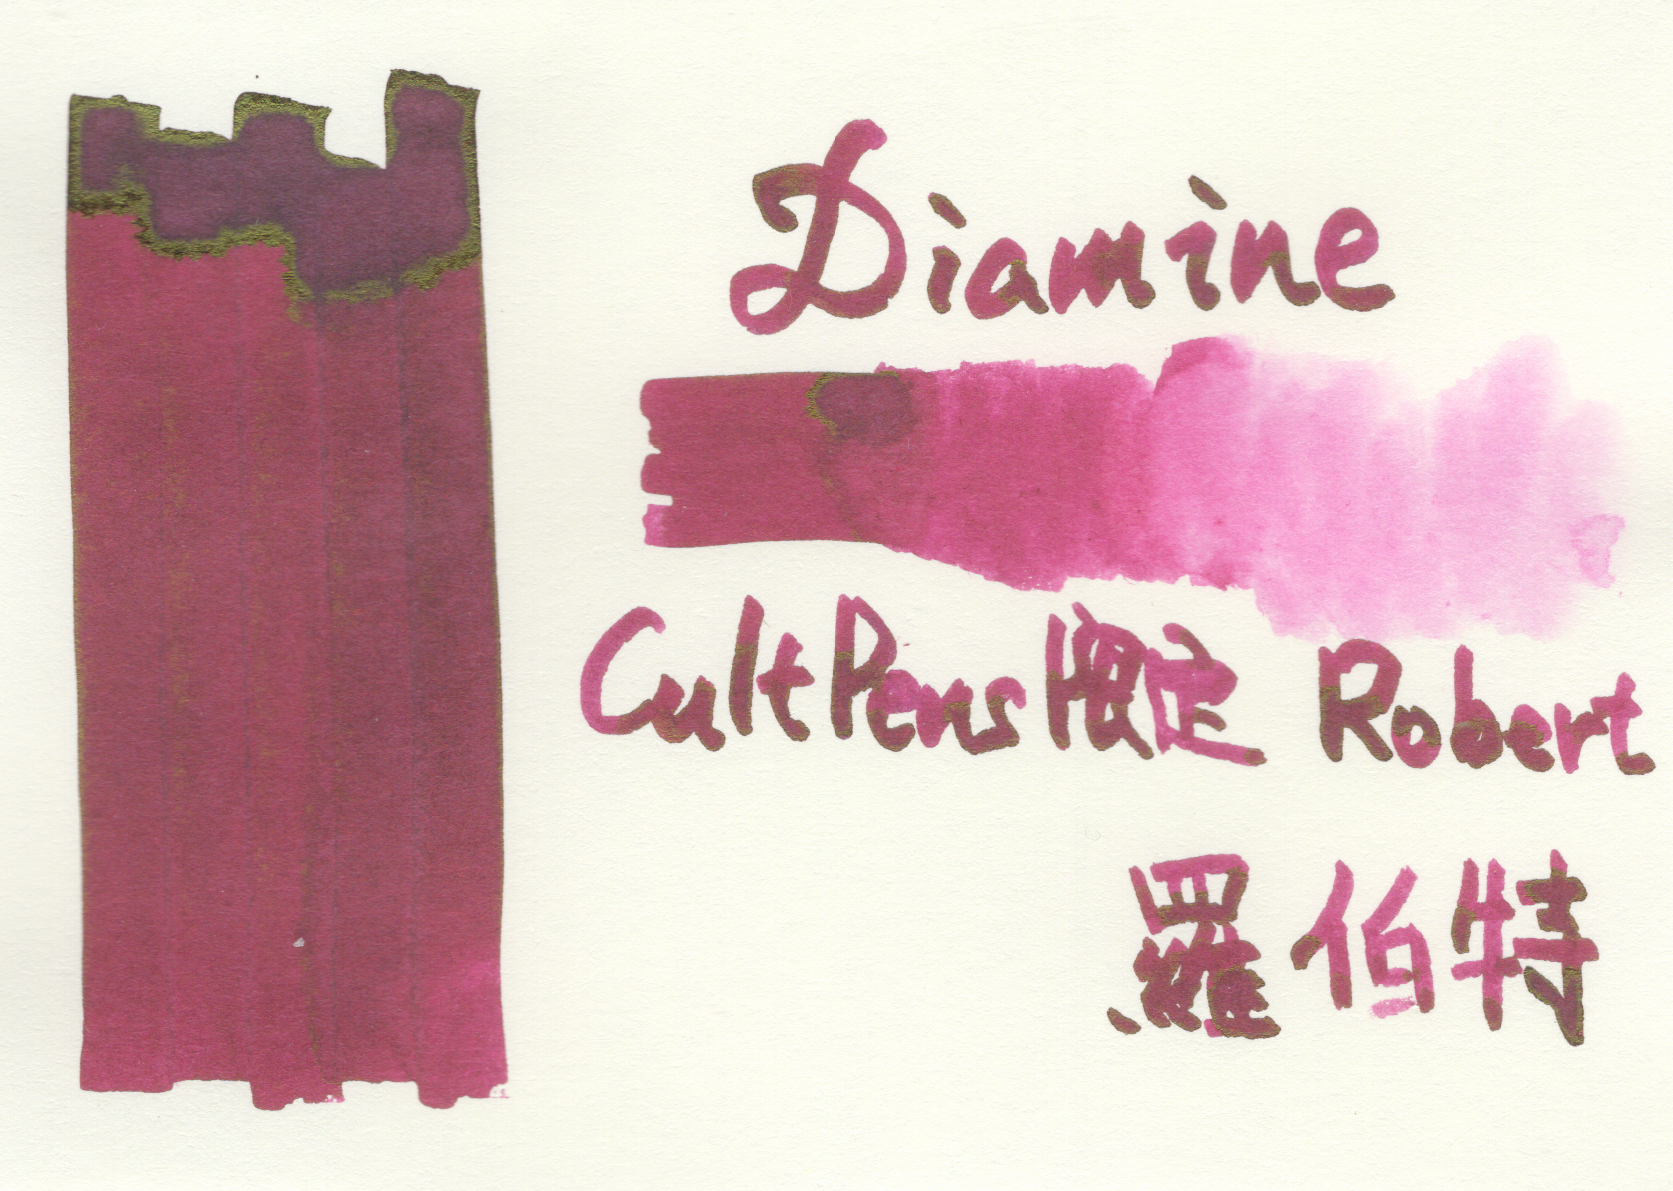 Diamine
CultPens限定 Robert
羅伯特